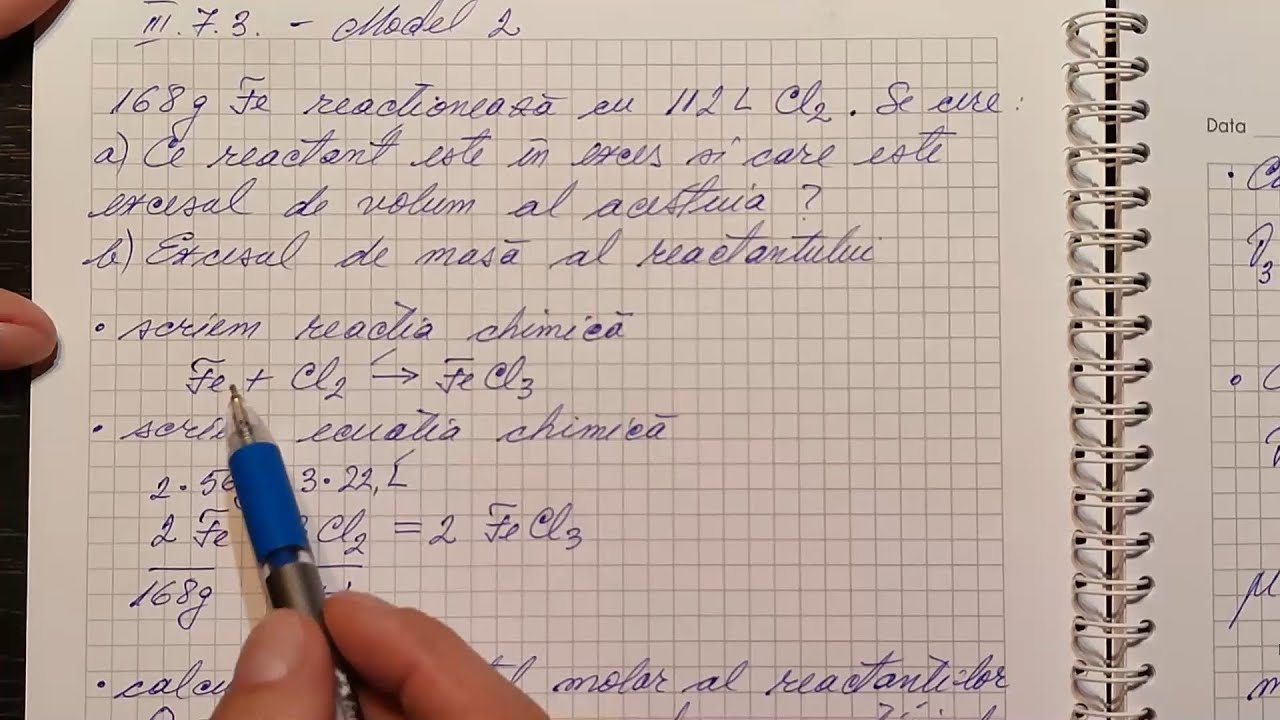 III.7.3. - Model 2
168g Fe reactionează cu 112 L Cl2. Se cere:
a) Ce reactant este în exces si care este
excesul de volum al acestuia ?
b) Excesul de masă al reactantului
• scriem reactia chimică
Fe + Cl2 → FeCl3
• ecuatia chimică
2 • 3 • 22,
2 Fe Cl2 = 2 FeCl3
168g
• molar al reactantilor
Data